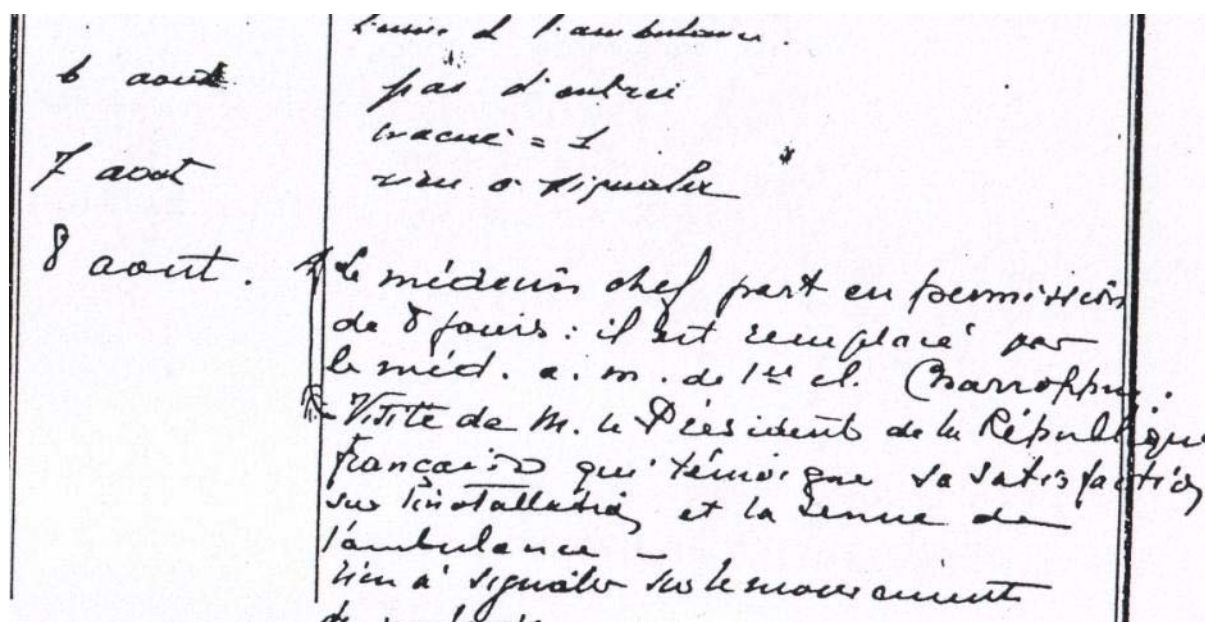 tenue de l'ambulance.
6 aout pas d'entrée
évacué = 1
7 aout rien à signaler
8 aout. Le médecin chef part en permission
de 8 jours : il est remplacé par
le méd. a. m. de 1re cl.
- Visite de M. le Président de la République
française qui témoigne sa satisfaction
sur l'installation et la tenue de
l'ambulance -
rien à signaler sur le mouvement